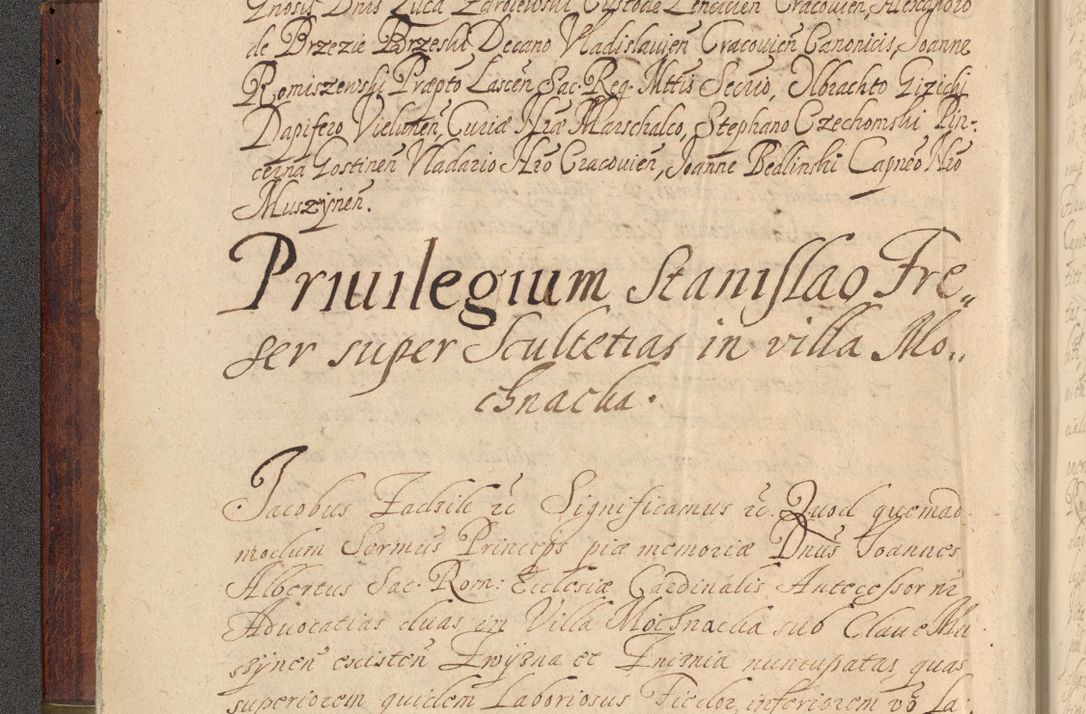 Gnosis Dnis Luca Zdroiewski Custode Lencicien Cracovien, Alexandro
de Brzezie Brzeski Decano Vladislavien Cracovien Canonicis, Joanne
Romiszewski Præpto Lascen Sac. Reg. Mttis Secrio, Olbrachto Gizicki
Dapifero Vielunen, Curiæ Nræ Marschalco, Stephano Czechomski Pin-
cerna Gostinen Vladario Nro Cracovien, Joanne Bedlinski Capneo Nro
Muszynen.
Priuilegium Stanislao Fre„
ser super Scultetias in villa Mo„
chnacka.
Jacobus Zadzik &c Significamus &c. Quod quemad
modum Sermus Princeps piæ memoriæ Dnus Joannes
Albertus Sac. Rom: Ecclesiæ Cardinalis Antecessor nr
Aduocatias duas in Villa Mochnacka sub Claue Mu
szynen existen Zwyzna et Zniznia nuncupatas, quas
superiorem quidem Laboriosus Fiedor inferiorem vo La